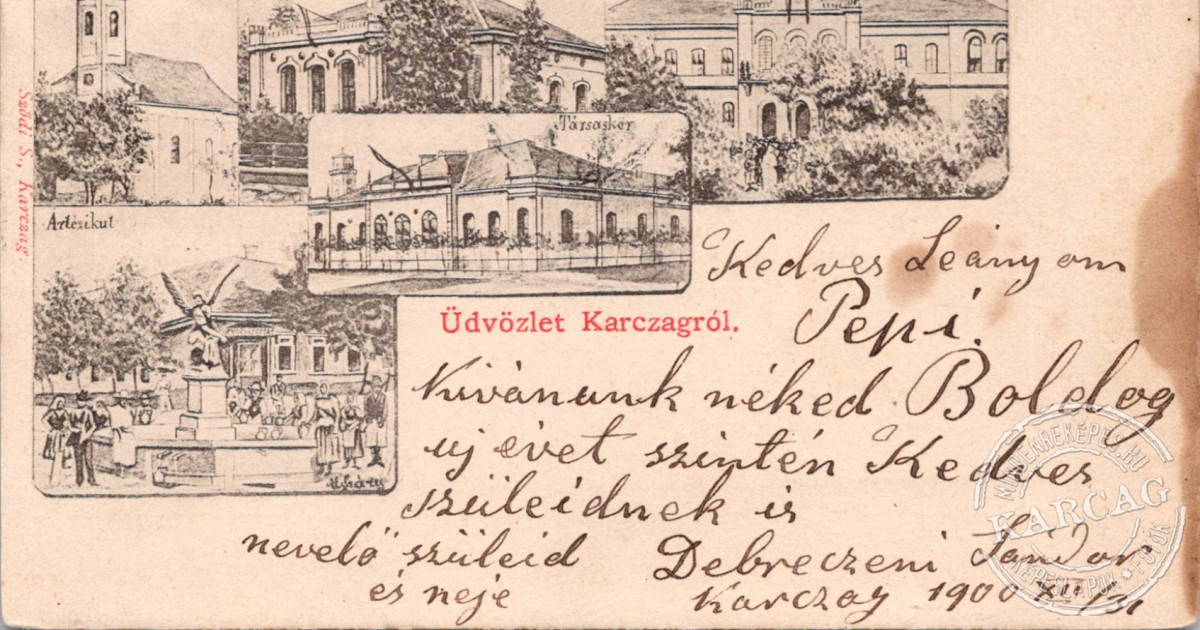 Szódi S., Karczag.
Társaskör
Artézikut
Üdvözlet Karczagról.
Kedves Leányom
Pepi.
Kivánunk néked Boldog
uj évet szintén Kedves
szüleidnek is
nevelő szüleid
Debreczeni Sándor
és neje
Karczag 1900 XII/31
MINDENREKÉPES.HU
KARCAG
KÉPESLAPOK • FOTÓK